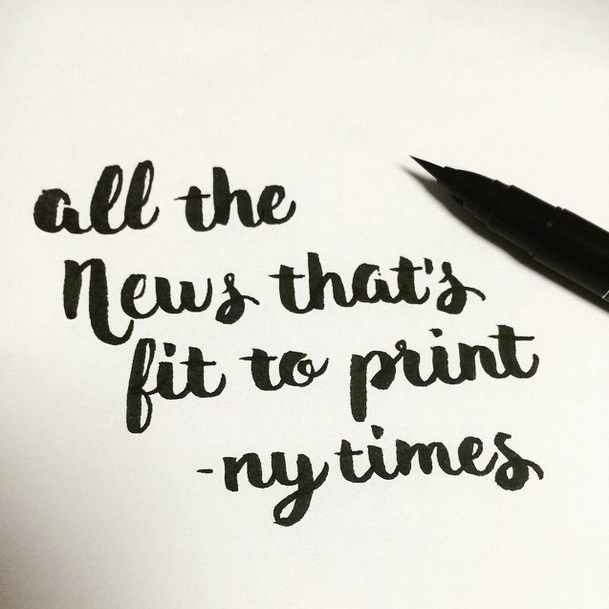 all the
News that's
fit to print
-ny times